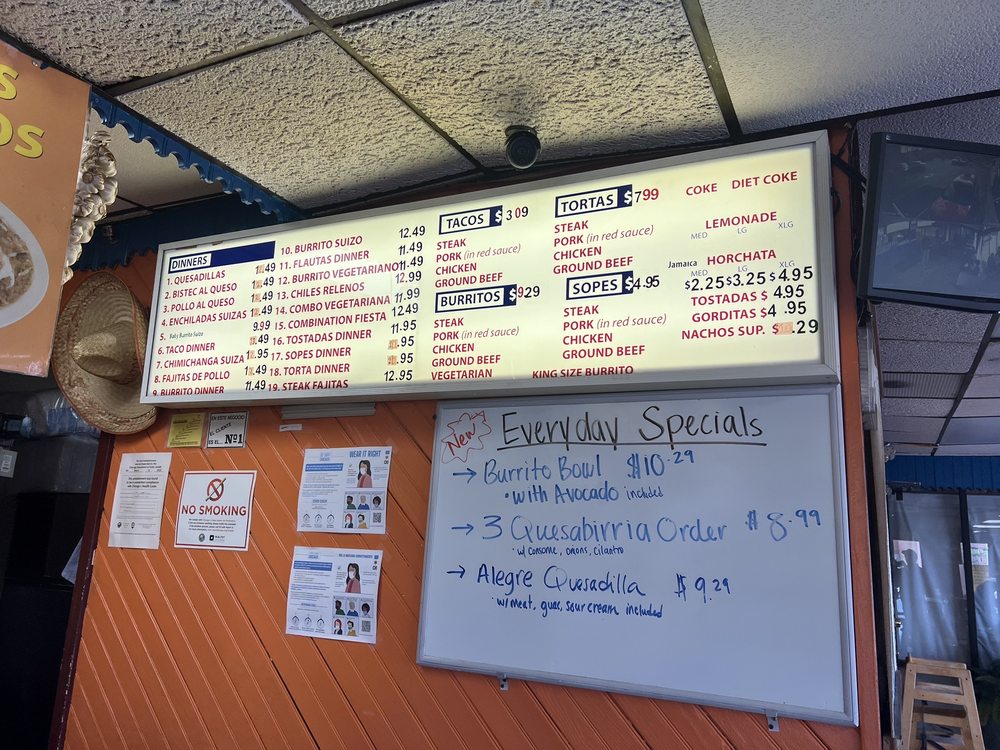 S
OS
DINNERS
1. QUESADILLAS
2. BISTEC AL QUESO
3. POLLO AL QUESO
4. ENCHILADAS SUIZAS
5. Baby Burrito Suizo
6. TACO DINNER
7. CHIMICHANGA SUIZA
8. FAJITAS DE POLLO
9. BURRITO DINNER
9.99
11.49
10. BURRITO SUIZO 12.49
11. FLAUTAS DINNER 11.49
12. BURRITO VEGETARIANO 11.49
13. CHILES RELENOS 12.99
14. COMBO VEGETARIANA 11.99
15. COMBINATION FIESTA 12.49
16. TOSTADAS DINNER 11.95
17. SOPES DINNER
18. TORTA DINNER
19. STEAK FAJITAS 12.95
TACOS $3.09
STEAK
PORK (in red sauce)
CHICKEN
GROUND BEEF
BURRITOS $9.29
STEAK
PORK (in red sauce)
CHICKEN
GROUND BEEF
VEGETARIAN
KING SIZE BURRITO
TORTAS $7.99
STEAK
PORK (in red sauce)
CHICKEN
GROUND BEEF
SOPES $4.95
STEAK
PORK (in red sauce)
CHICKEN
GROUND BEEF
COKE DIET COKE
LEMONADE
MED LG XLG
Jamaica HORCHATA
MED LG XLG
$2.25 $3.25 $4.95
TOSTADAS $ 4.95
GORDITAS $4.95
NACHOS SUP.
EN ESTE NEGOCIO
EL CLIENTE
ES EL... Nº1
NO SMOKING
WEAR IT RIGHT
New
Everyday Specials
→ Burrito Bowl $10.29
• with Avocado included
→ 3 Quesabirria Order $8.99
• w/ consome, onions, cilantro
→ Alegre Quesadilla $9.29
• w/ meat, guac, sour cream included